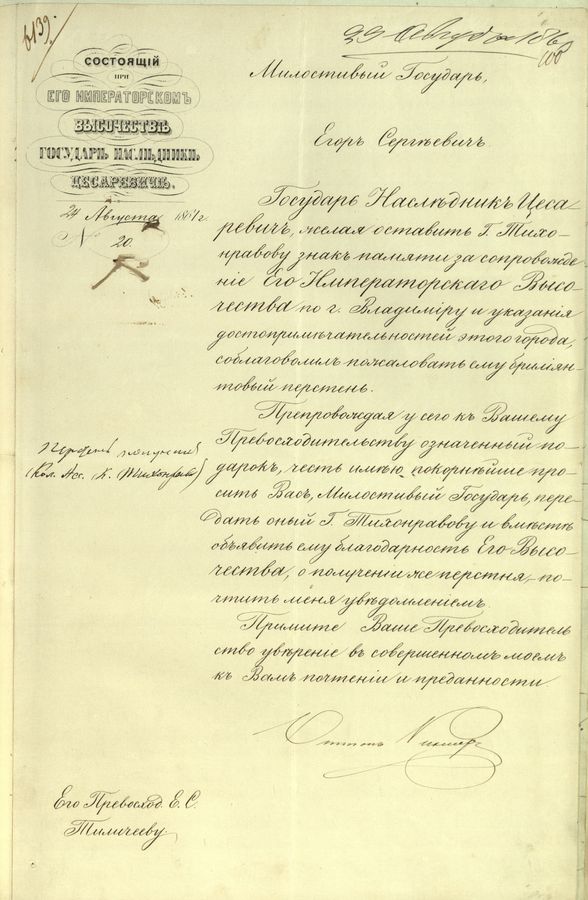 6139.
29 Августа 186
СОСТОЯЩІЙ
ПРИ
ЕГО ИМПЕРАТОРСКОМЪ
ВЫСОЧЕСТВѢ
ГОСУДАРѢ НАСЛѢДНИКѢ
ЦЕСАРЕВИЧѢ.
24 Августа 1861 г.
N 20.
Милостивый Государь,
Егоръ Сергѣевичъ.
Государь Наслѣдникъ Цеса
ревичъ, желая оставить Г. Тихо-
нравову знакъ памяти за сопровожде
ніе Его Императорскаго Высо-
чества по г. Владиміру и указанія
достопримѣчательностей этого города,
соблаговолилъ пожаловать ему брилiян-
товый перстень.
Препровождая у сего къ Вашему
Превосходительству означенный по-
дарокъ, честь имѣю покорнѣйше про-
сить Васъ, Милостивый Государь, пере-
дать оный Г. Тихонравову и вмѣстѣ
объявить ему благодарность Его Высо-
чества, о полученіи же перстня, по-
чтить меня увѣдомленіемъ.
Примите Ваше Превосходитель
ство увѣреніе въ совершенномъ моемъ
къ Вамъ почтеніи и преданности.
Перстень получилъ
Кол. Асс. К. Тихонравов
Его Превосход. Е. С.
Тиличееву